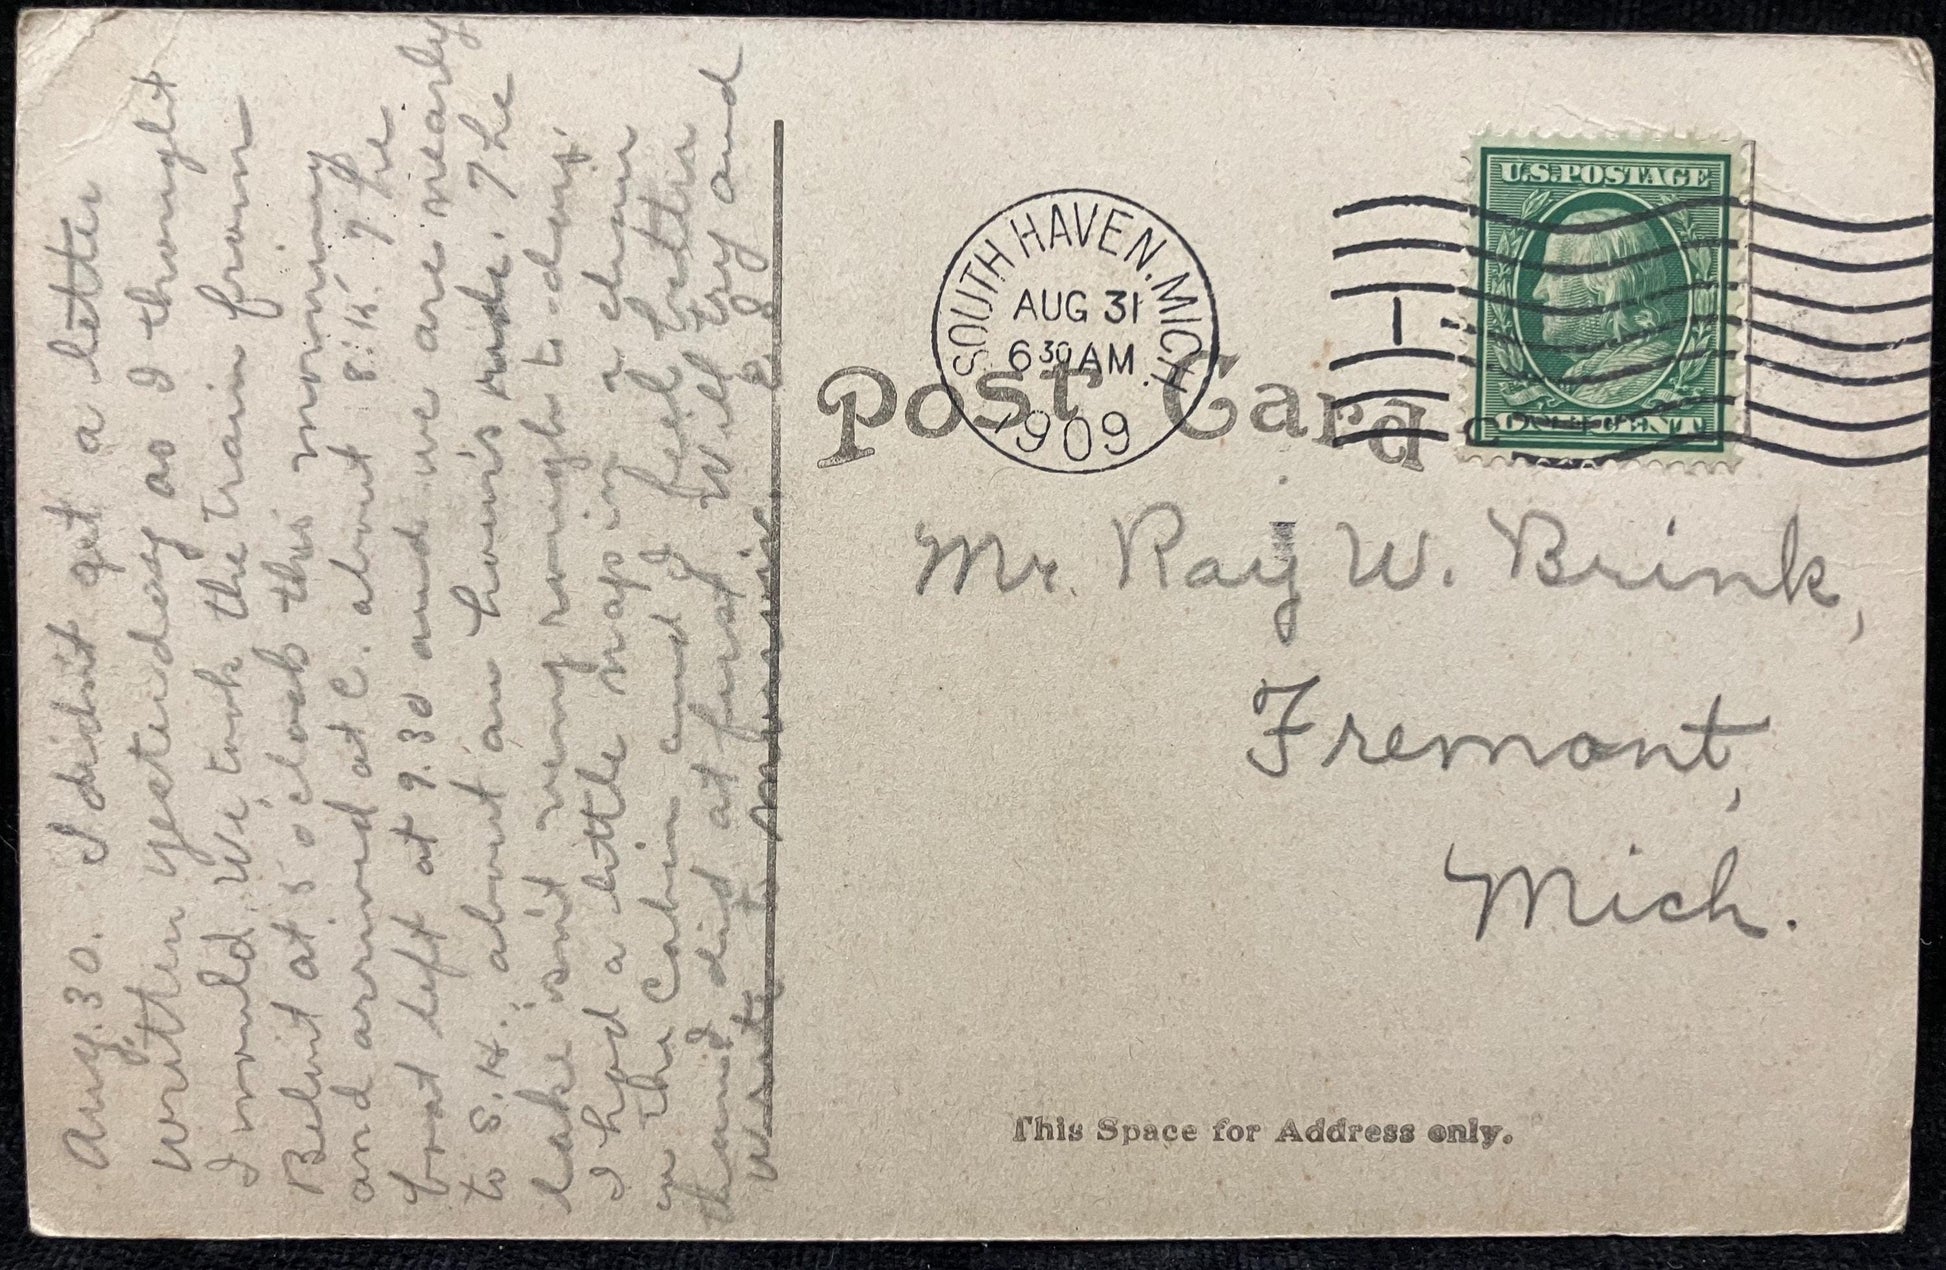 Aug. 30. I didn't get a letter
written yesterday as I thought
I would. We took the train from
Beloit at 5 o clock this morning
and arrived at C. about 8:15. The
boat left at 9.30 and we are nearly
to S. H. about an hour's ride. The
lake isn't very rough to-day.
I had a little nap in a chair
in the Cabin and I feel better
than I did at first. Will try and
write to-morrow.
SOUTH HAVEN, MICH.
AUG 31
6 30 AM
1909
1
U.S. POSTAGE
ONE CENT
Post Card
Mr. Ray W. Brink,
Fremont,
Mich.
This Space for Address only.